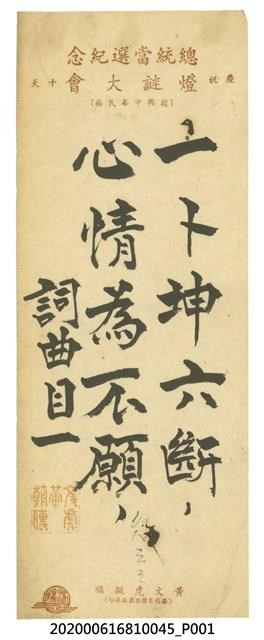 總統當選紀念
慶祝 燈謎大會 千天
〔復興中華民族〕
一卜坤六斷，
心情為不願，
詞曲目一
黃文虎擬稿
202000616810045_P001